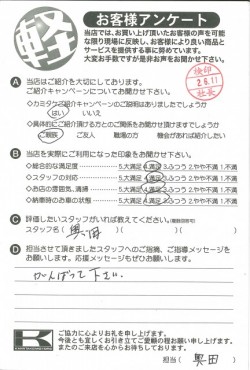 軽
お客様アンケート
当店では、お買い上げ頂いたお客様の声を可能
な限り現場に反映し、お客様により良い商品と
サービスを提供する事に努めています。
大変お手数ですが是非お声をお聞かせ下さい。
検印
2.6.11
社長
A 当店はご紹介を大切にしております。
ご紹介キャンペーンについてお聞かせ下さい
◇カミタケご紹介キャンペーンのご説明はありましたでしょうか
はい いいえ
◇具体的にご紹介頂ける方とのご関係をお聞かせ頂けますでしょうか
ご親族 ご友人 職場の方 機会があれば紹介したい
B 当店を実際にご利用になった印象をお聞かせ下さい。
◇総合的な満足度 5.大満足 4.満足 3.ふつう 2.やや不満 1.不満
◇スタッフの対応 5.大満足 4.満足 3.ふつう 2.やや不満 1.不満
◇お店の雰囲気、清潔 5.大満足 4.満足 3.ふつう 2.やや不満 1.不満
◇納車時のお車の状態 5.大満足 4.満足 3.ふつう 2.やや不満 1.不満
C 評価したいスタッフがいれば教えてください。
スタッフ名( 奥田 )
D 担当させて頂きましたスタッフへのご指摘、ご指導メッセージを
お願いします。応援メッセージもぜひお願いします。
がんばって下さい。
K
ご協力に心よりお礼を申し上げます。
今後とも宜しくお引き立てご愛顧の程お願い申し上げます。
またのご来店を心からお待ちしております。
担当( 奥田 )